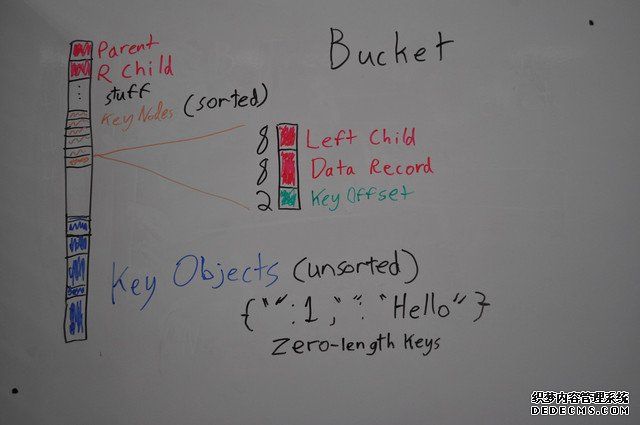 Bucket
Parent
R Child
stuff
Key Nodes (sorted)
8 Left Child
8 Data Record
2 Key Offset
Key Objects (unsorted)
{"":1,"":"Hello"}
Zero-length Keys
织梦内容管理系统
DEDECMS.COM